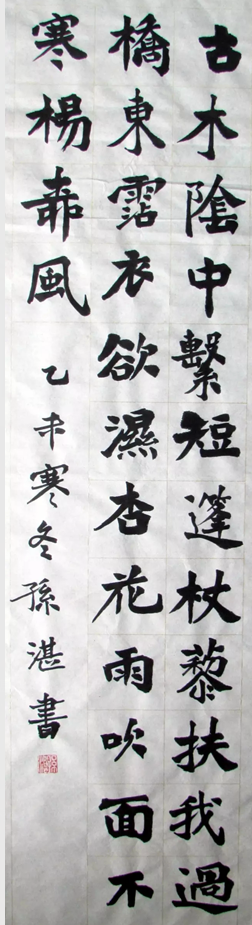 古木陰中繫短篷杖藜扶我過
橋東霑衣欲濕杏花雨吹面不
寒楊輂風
乙未寒冬孫湛書